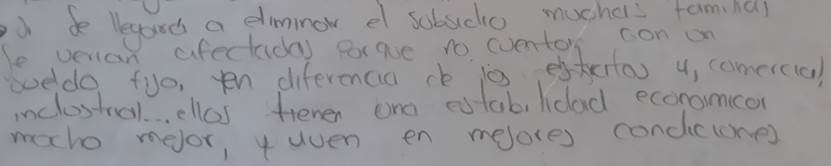 Si se llegara a eliminar el subsidio muchas familias
se verian afectadas porque no cuentan con un
sueldo fijo, en diferencia de los estratos 4, comercial
industrial... ellos tienen una estabilidad economica
mucho mejor, y viven en mejores condiciones